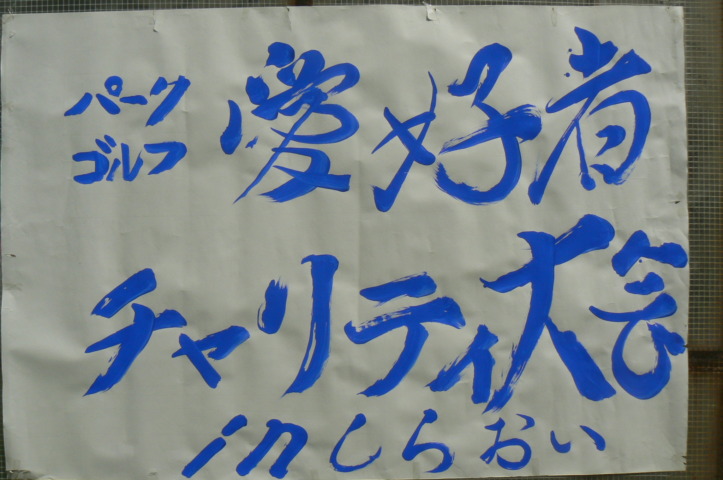 パークゴルフ 愛好者
チャリティ大会
in しらおい